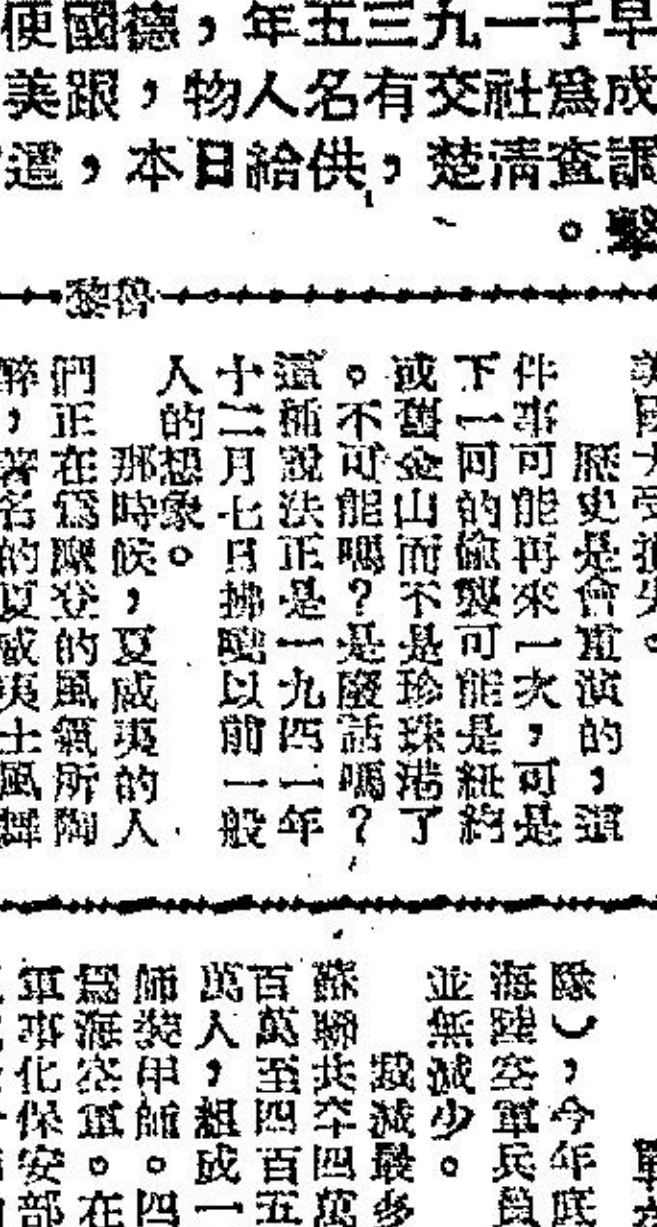 早于一九三五年，德國便
成爲社交有名人物，跟美
調查清楚，供給日本，還
擊。
魯黎
美國大受損失。
歷史是會重演的，這
件事可能再來一次，可是
下一回的偷襲可能是紐約
或舊金山而不是珍珠港了
。不可能嗎？是廢話嗎？
這種說法正是一九四一年
十二月七日拂曉以前一般
人的想象。
那時候，夏威夷的人
們正在爲聖誕的風氣所陶
醉，著名的夏威夷土風舞
隊），今年底
海陸空軍兵員
並無減少。
裁減最多
蘇聯共卒四萬
百萬至四百五
萬人，組成一
師裝甲師。四
爲海空軍。在
軍事化保安部